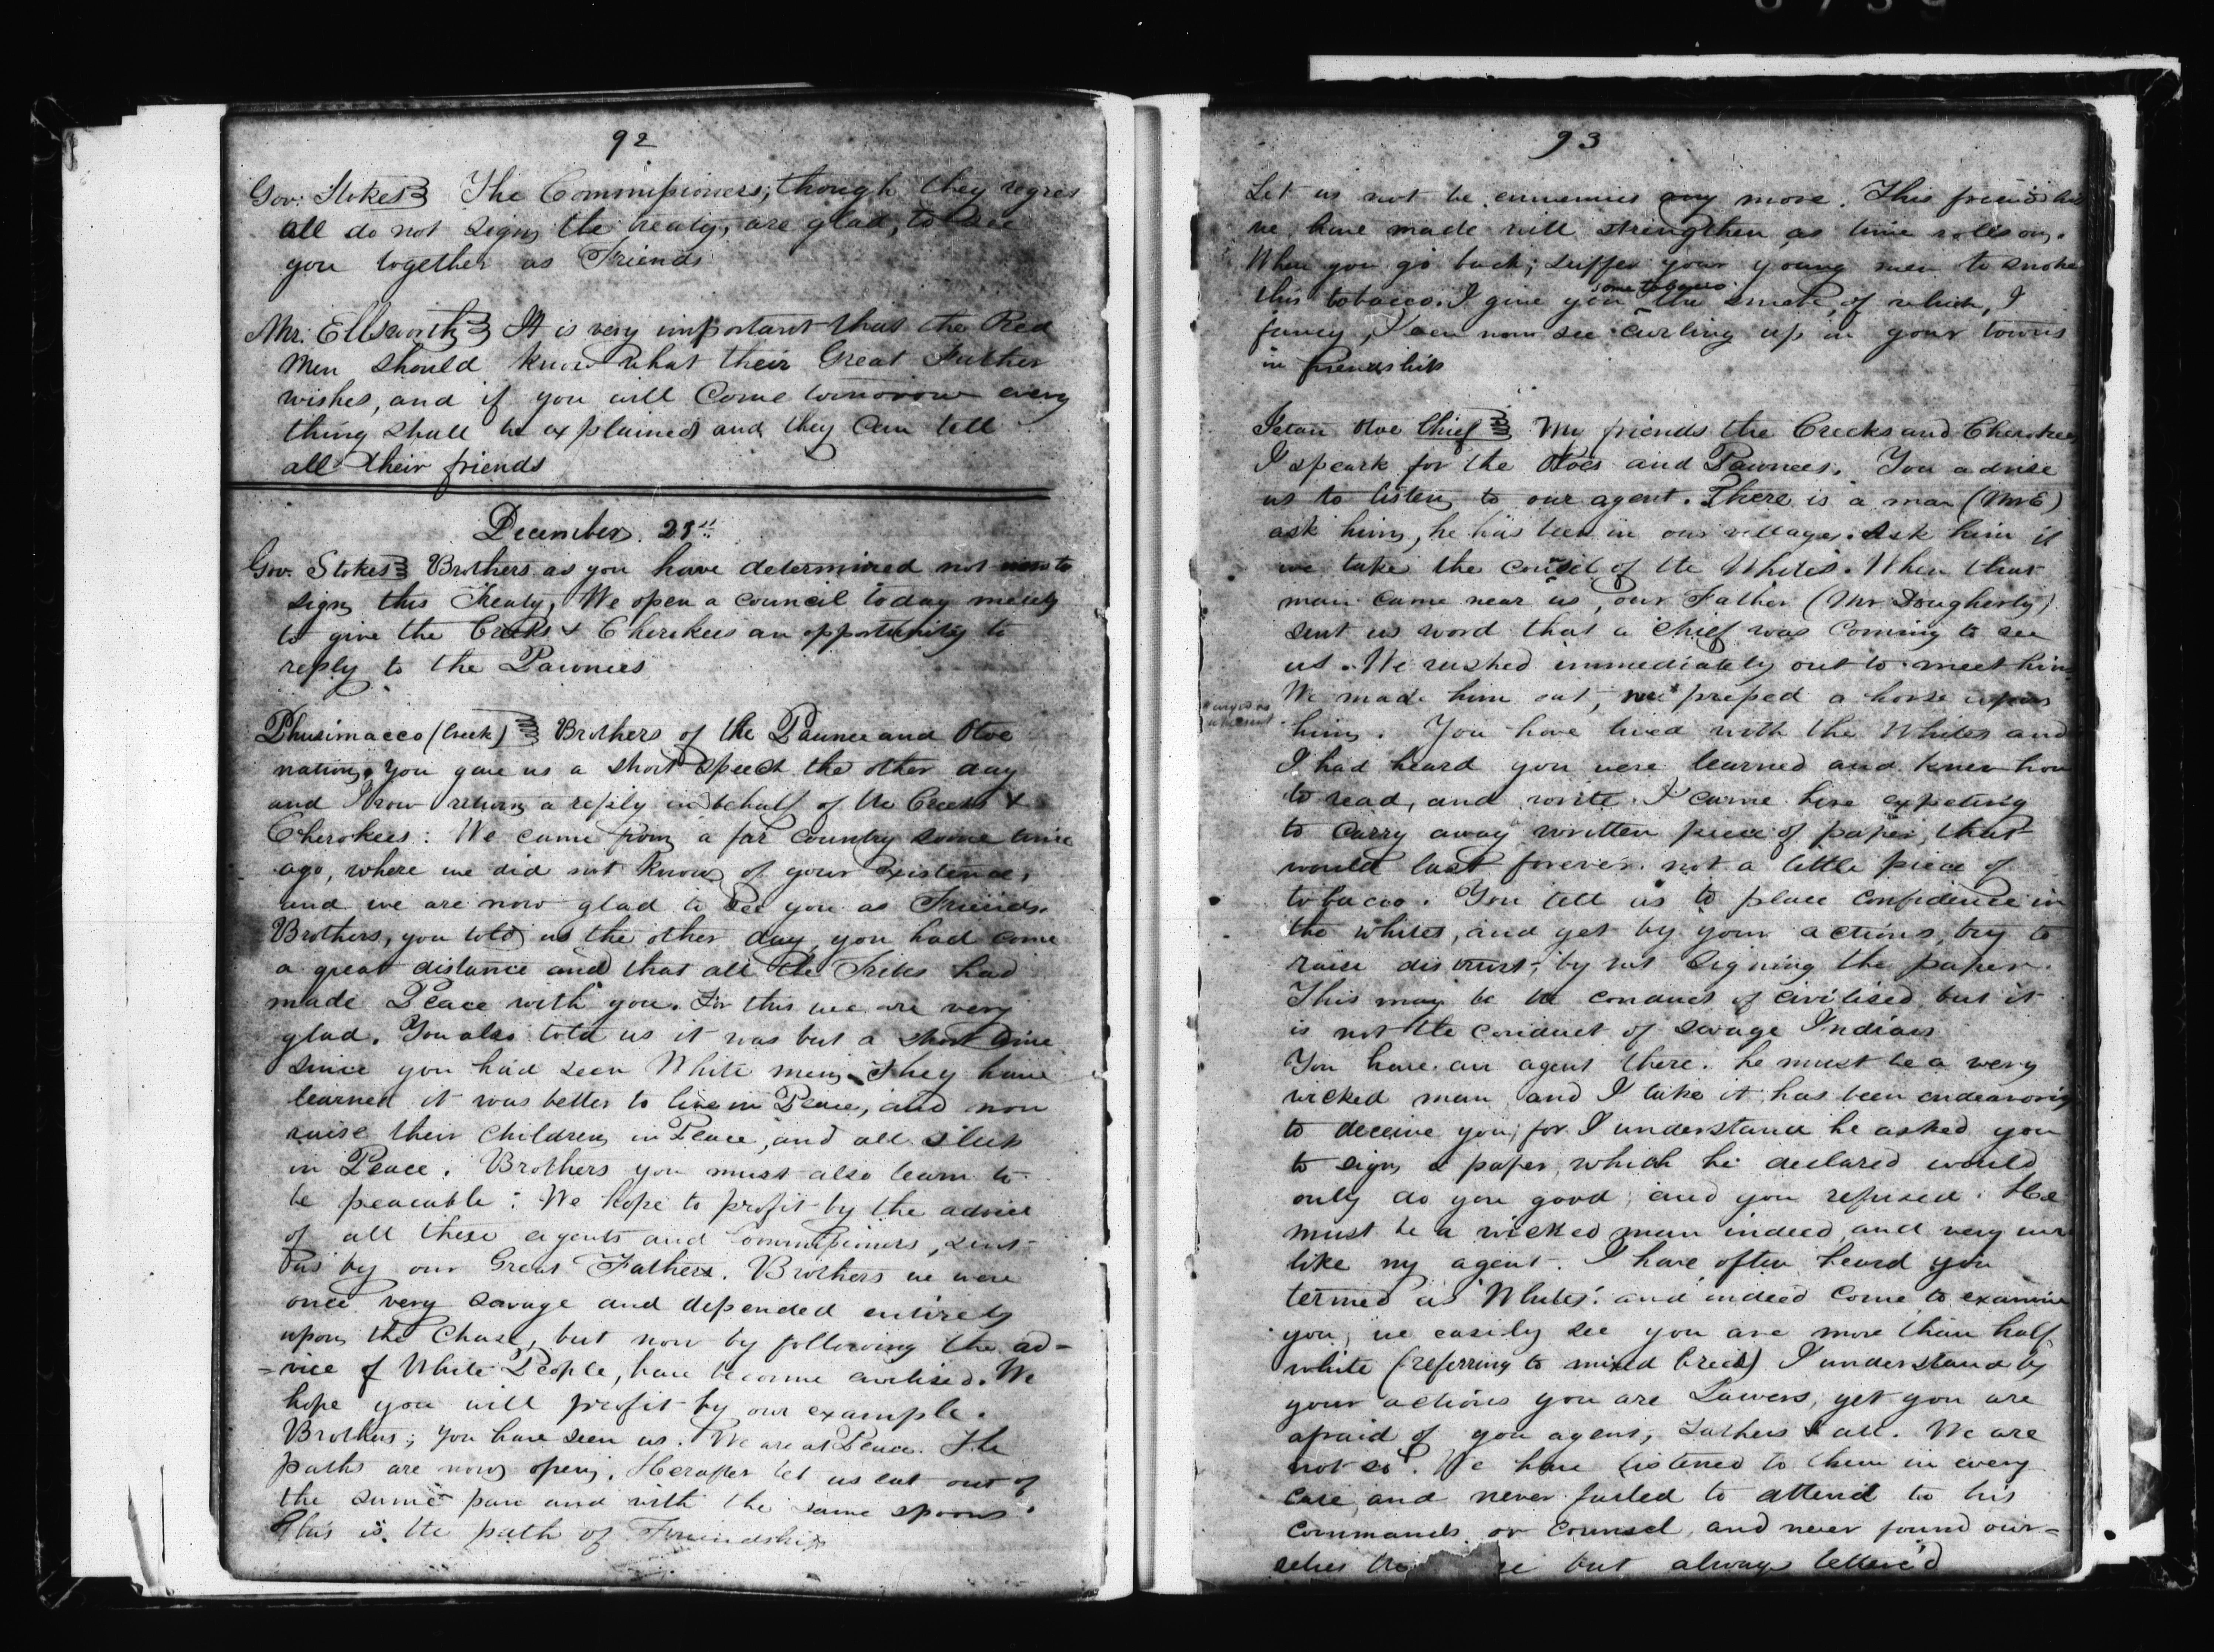 92
Gov: Stokes The Commissioners, though they regret
all do not sign the treaty, are glad, to see
you together as Friends
Mr. Ellsworth It is very important that the Red
Men should know what their Great Father
wishes, and if you will Come tomorrow every
thing shall be explained and they Can tell
all their friends
December 23d
Gov. Stokes Brothers as you have determined not now to
sign this Treaty, We open a Council today merely
to give the Creeks & Cherekees an opportunity to
reply to the Pawnees
Phusimacco (Creek) Brothers of the Pawnee and Otoe
nation, you gave us a short speech the other day
and I now return a reply in behalf of the Creeks &
Cherokees: We came from a far Country some time
ago, where we did not know of your existence,
and we are now glad to see you as Friends.
Brothers, you told us the other day, you had come
a great distance and that all the Tribes had
made Peace with you. For this we are very
glad. You also told us it was but a short time
since you had seen White men. They have
learned it was better to live in Peace, and now
raise their Children in Peace, and all sleep
in Peace. Brothers you must also learn to
be peacable: We hope to profit by the advice
of all these agents and Commissioners, sent
us by our Great Father. Brothers we were
once very savage and depended entirely
upon the Chase, but now by following the ad=
=vice of White People, have become civilised. We
hope you will profit by our example.
Brothers; you have seen us. We are at Peace. The
paths are now open. Herafter let us eat out of
the same pan and with the same spoons.
This is the path of Friendship
93
Let us not be ennemies any more. This friendship
we have made will strengthen as time rolls on.
When you go back; suffer your young men to smoke
some tobacco
this tobacco. I give you the smoke, of which, I
fancy, I can now see curling up in your towns
in friendship
Ietan Otoe Chief My friends the Creeks and Cherokees
I speark for the Otoes and Pawnees. You advise
us to listen to our agent. There is a man (Mr E)
ask him, he has been in our villages. Ask him if
we take the Council of the Whites. When that
man came near us, our Father (Mr Dougherty)
sent us word that a Chief was Coming to see
us. We rushed immediately out to meet him
We made him out, we preped a horse upon
him. You have lived with the Whites and
I had heard you were learned and knew how
to read, and write. I came here expeting
to carry away written piece of paper, that
would last forever. not a little piece of
tobacco. You tell us to place confidence in
the whites, and yet by your actions, try to
raise distrust, by not signing the paper.
This may be the conduct of civilised but it
is not the conduct of savage Indians
You have an agent there. he must be a very
wicked man and I take it, has been endeavoring
to deceive you, for I understand he asked you
to sign a paper, which he declared would
only do you good, and you refused. He
must be a wicked man indeed, and very un
like my agent. I have often heard you
termed as 'Whites'. and indeed Come to examine
you, we easily see you are more than half
white (referring to mixed breed) I understand by
your actions you are Lawers, yet you are
afraid of you agent, Fathers & all. We are
not so. We have listened to them in every
case, and never failed to attend to his
commands or counsel, and never found our=
selves but always better'd